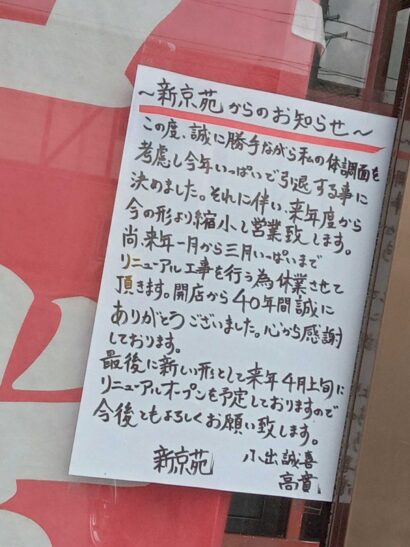 ～新京苑からのお知らせ～
この度、誠に勝手ながら私の体調面を
考慮し今年いっぱいで引退する事に
決めました。それに伴い、来年度から
今の形より縮小し営業致します。
尚、来年一月から三月いっぱいまで
リニューアル工事を行う為休業させて
頂きます。開店から40年間誠に
ありがとうございました。心から感謝
しております。
最後に新しい形として来年4月上旬に
リニューアルオープンを予定しておりますので
今後ともよろしくお願い致します。
新京苑 小出誠喜
高貴